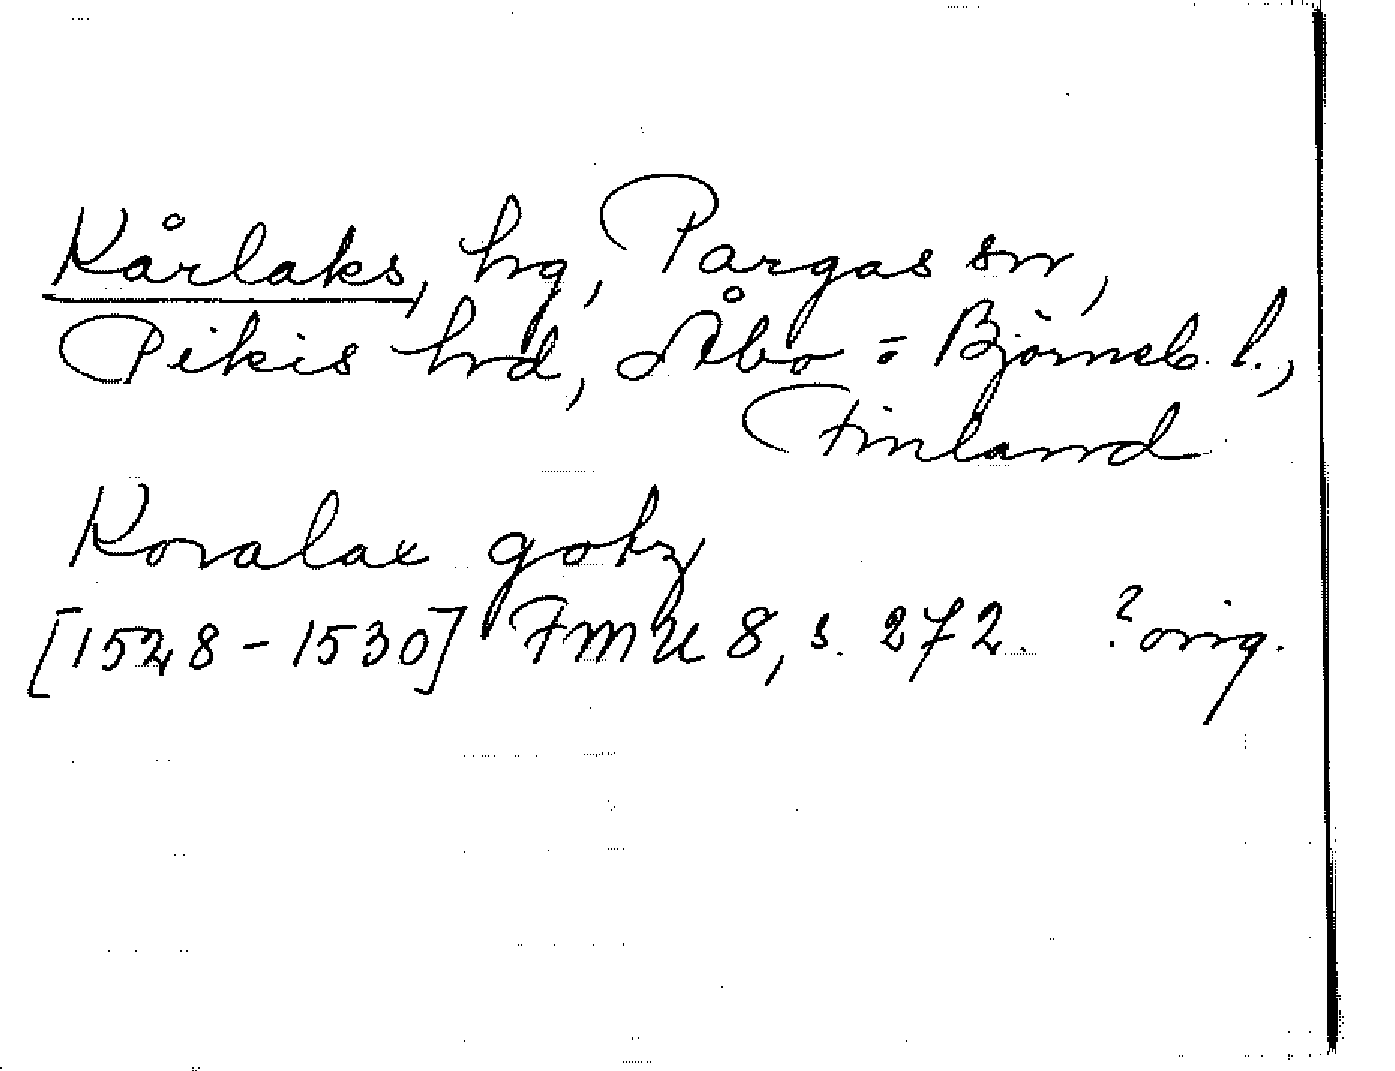 Kårlaks, hrg, Pargas sn,
Pikis hrd, Åbo = Björneb. l.,
Finland
Koralax gotz
[1528-1530] FMU 8, s. 272. ? orig.